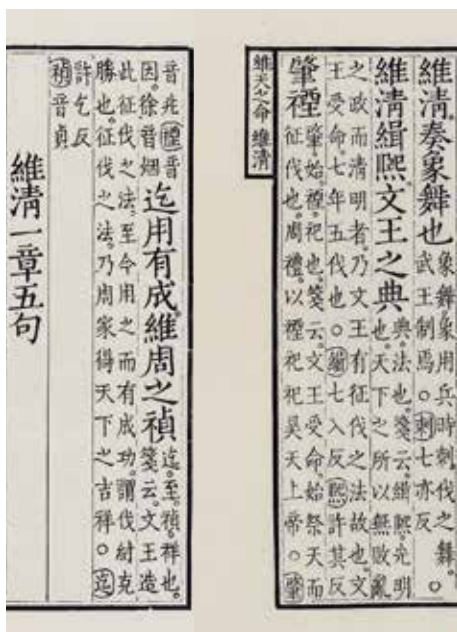 維清奏象舞也象舞。象用兵時刺伐之舞。○武王制焉。○刺七亦反
維清緝熙文王之典典法也。箋云。緝熙。光明也。天下之所以無敗亂
之政而清明者。乃文王有征伐之法故也。文王受命。七年五伐也。○緝七入反熙許其反
肇禋肇始。禋祀也。箋云。文王受命始祭天而征伐也。周禮。以禋祀祀昊天上帝。○肇
維天之命 維清
音兆禋音因。徐音烟迄用有成維周之禎迄。至。禎。祥也。箋云。文王造
此征伐之法。至今用之而有成功。謂伐紂克勝也。征伐之法。乃周家得天下之吉祥。○迄
許乞反禎音貞
維清一章五句